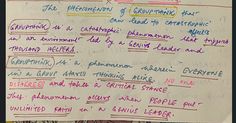 The PHENOMENON of GROUPTHINK that
can lead to CATASTROPHIC effects
GROUPTHINK is a catastrophic phenomenon that triggered
in an environment led by a GENIUS leader and
THOUSAND HELPERS.
GROUPTHINK is a phenomenon wherein EVERYONE
IN A GROUP STARTS THINKING ALIKE, NO ONE
DISAGREES and takes a CRITICAL STANCE.
This phenomenon occurs when PEOPLE put
UNLIMITED FAITH in a GENIUS LEADER.